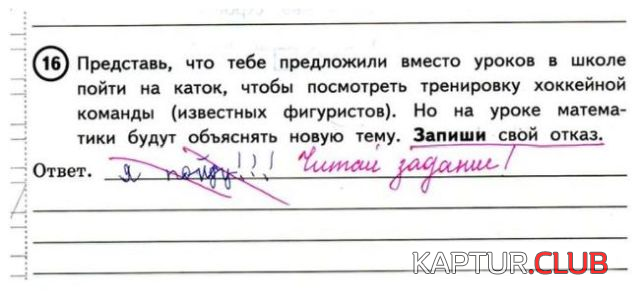 16 Представь, что тебе предложили вместо уроков в школе
пойти на каток, чтобы посмотреть тренировку хоккейной
команды (известных фигуристов). Но на уроке матема-
тики будут объяснять новую тему. Запиши свой отказ.
Ответ. я пойду!!! Читай задание!
KAPTUR.CLUB